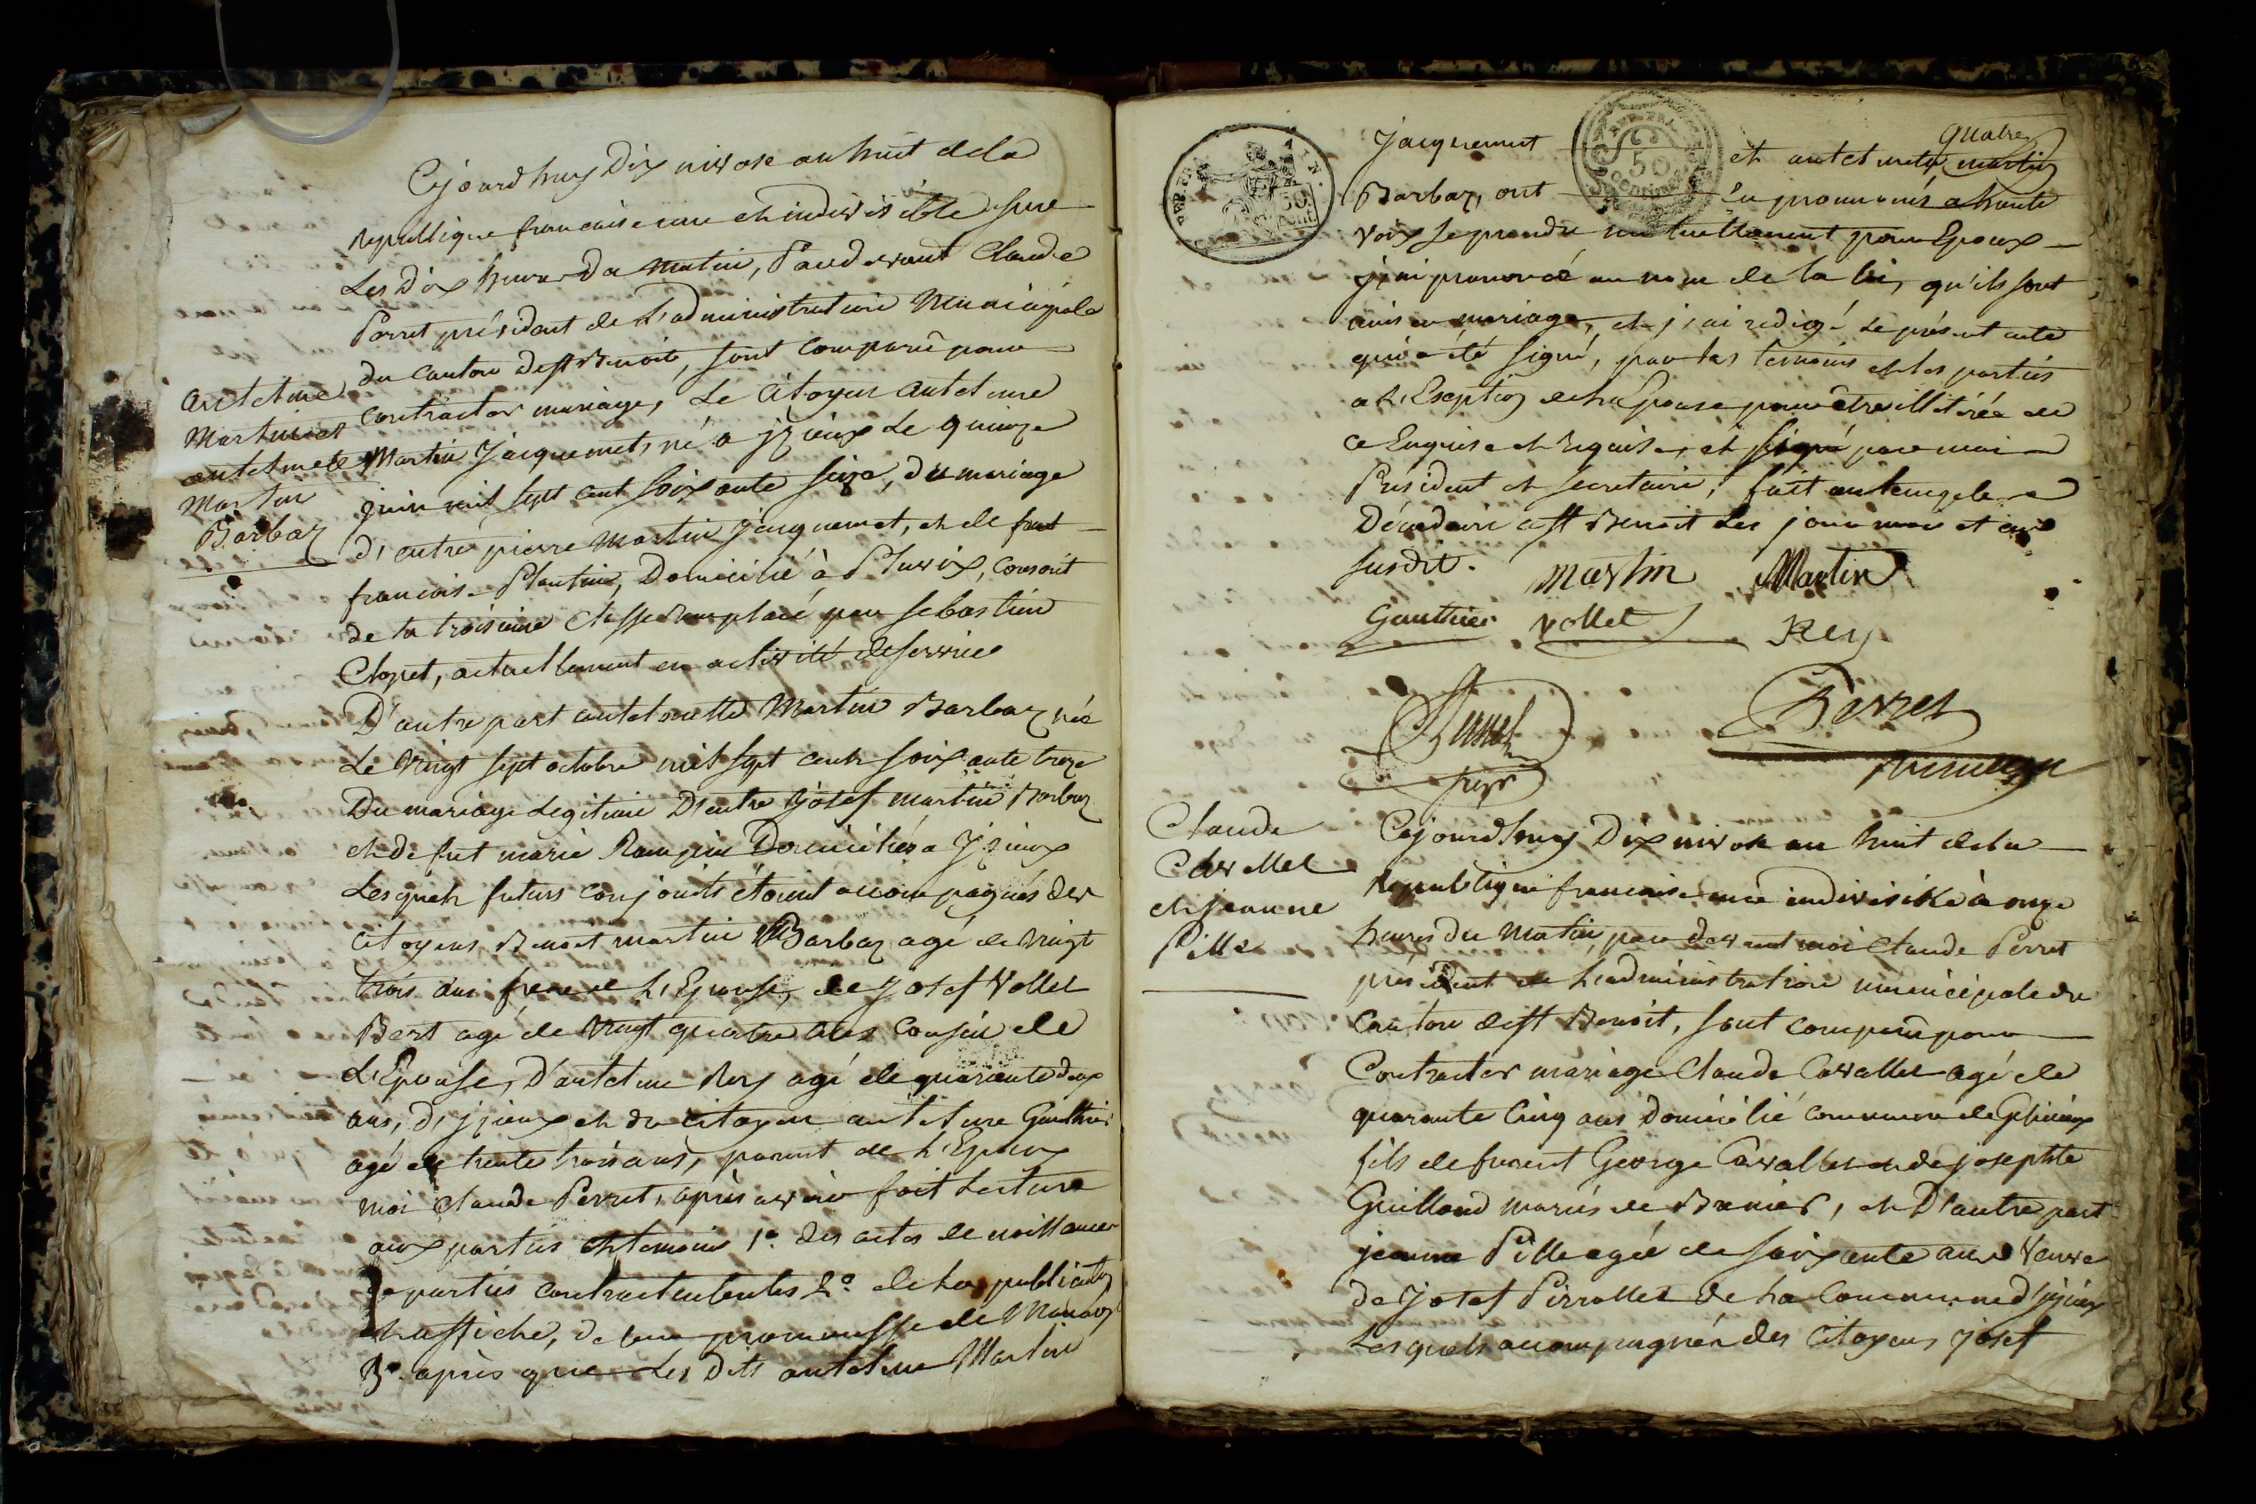 Cejourdhuy Dix nivose an huit de la
republique francaise une et indivisible sur
Les Dix heures Du Matin, Pardevant Claude
Perret président de L'administration Municipale
du Canton de St Benoit, sont comparu pour
contracter mariage, Le Citoyen antelme
Martin Jacquemet né a jzieux Le quinze
juin mil sept cent soixante seize, du mariage
d'entre pierre Martin Jacquemet, et de fut
francoise Plantin, Domicilié à Pluvix, conscrit
de la troisieme Classe Remplacé par sebastien
Clopet, actuellement en activité de service
D'autre part antelmette Martin Barbaz née
Le Vingt sept octobre mil sept cent soixante treze
Du mariage Legitime D'entre Josef martin Barbaz
et de fut marie Domiciliés a Jzieux
Lesquels futurs conjoints étoient accompagnés des
Citoyens Benoit martin Barbaz agé de Vingt
trois ans frere de L'Epouse, de Josef Vollet
Bert agé de Vingt quatre ans Cousin de
L'Epouse, D'antelme Rey agé de quarante deux
ans, D'jzieux et du Citoyen antelme Gauthier
agé de trente trois ans, parent de L'Epoux
moi Claude Perret, après avoir fait Lecture
aux parties et temoins 1° des actes de naissances
de parties contractantes 2° de la publication
et affiche, de leur promesse de Mariage
3° après que Les Dits antelme Martin
Antelme
Martin
antelmette
Martin
Barbaz
Jacquemet et antelmette quatre martin
Barbaz, ont prononcés a haute
voix se prendre mutuellement pour Epoux
j'ai prononcé au nom de la loi, qu'ils sont
unis en mariage, et j'ai redigé Le présent acte
qui a été signé, par les temoins et les parties
a L'Exeption de L'Epouse pour être illitérée de
ce Enquise et Requise, et signé par moi
Président et secretaire, fait au temple
Décadaire a St Benoit Les jour mois et an
susdit.
martin Martin
Gauthier vollet Rey
Perret
Claude
Cavallet
et jeanne
Pille
Cejourdhuy Dix nivose an huit de la
republique francaise une indivisible à onze
heures du Matin, par devant moi Claude Perret
president de L'administration municipale du
Canton de St Benoit, sont comparu pour
Contracter mariage Claude Cavallet agé de
quarante Cinq ans Domicilié commune de
fils de furent George Cavallet et de josephte
Guilland mariés de , et D'autre part
jeanne Pille agée de soixante ans Veuve
de Josef Pirrollet de La Commune d'jzieux
Lesquels accompagnés des Citoyens Josef